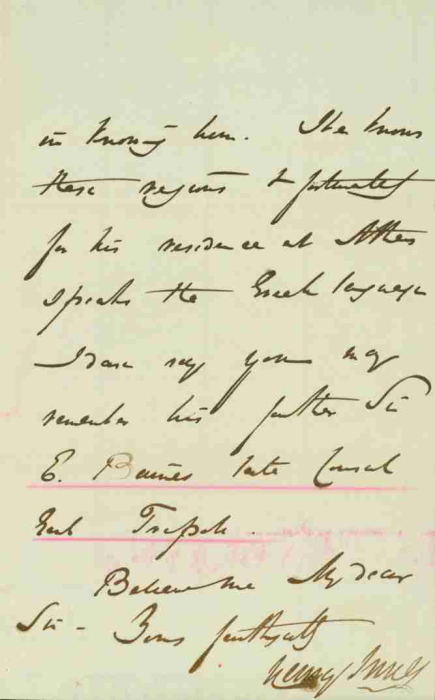 in knowing him. He knows
these regions & fortunately
for his residence at Athens
speaks the Greek language
I dare say you may
remember his father Sir
E. Baines late Consul
Genl Tripoli.
Believe me My dear
Sir - Yours faithfully
Henry